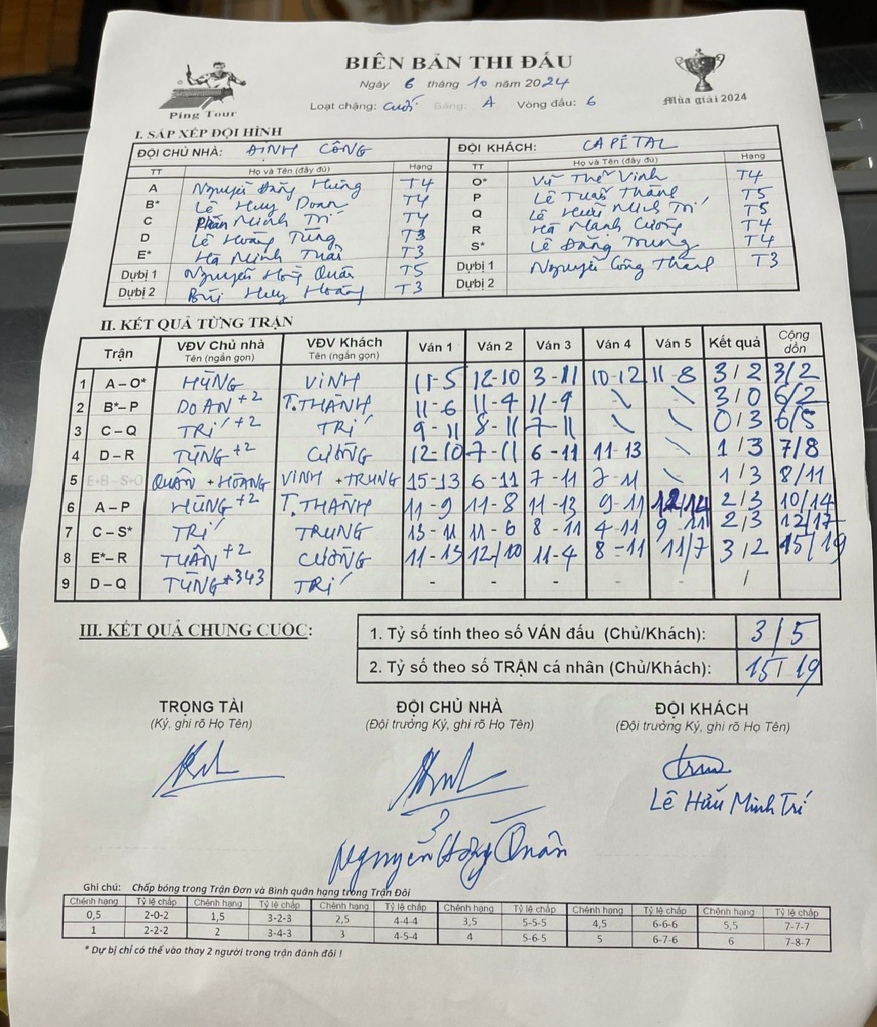 Ping Tour
BIÊN BẢN THI ĐẤU
Ngày 6 tháng 10 năm 2024
Loại chặng: Cuối Bảng: A Vòng đấu: 6
Mùa giải 2024
I. SẮP XẾP ĐỘI HÌNH
ĐỘI CHỦ NHÀ: ĐỊNH CÔNG ĐỘI KHÁCH: CAPITAL
TT Họ và Tên (đầy đủ) Hạng TT Họ và Tên (đầy đủ) Hạng
A Nguyễn Đăng Hùng T4 O* Vũ Thế Vinh T4
B* Lê Huy Doan T4 P Lê Tuấn Thành T5
C Phan Minh Trí T4 Q Lê Hữu Minh Trí T5
D Lê Hoàng Tùng T3 R Hà Mạnh Cường T4
E* Hà Minh Tuấn T3 S* Lê Đăng Trung T4
Dự bị 1 Nguyễn Hồng Quân T5 Dự bị 1 Nguyễn Công Thành T3
Dự bị 2 Bùi Huy Hoàng T3 Dự bị 2
II. KẾT QUẢ TỪNG TRẬN
Trận VĐV Chủ nhà Tên (ngắn gọn) VĐV Khách Tên (ngắn gọn) Ván 1 Ván 2 Ván 3 Ván 4 Ván 5 Kết quả Cộng dồn
1 A – O* HÙNG VINH 11-5 12-10 3-11 10-12 11-8 3/2 3/2
2 B* – P DOAN +2 T.THÀNH 11-6 11-4 11-9 \ \ 3/0 6/2
3 C – Q TRÍ +2 TRÍ 9-11 8-11 7-11 \ \ 0/3 6/5
4 D – R TÙNG +2 CƯỜNG 12-10 7-11 6-11 11-13 \ 1/3 7/8
5 E+B – S+O QUÂN + HOÀNG VINH + TRUNG 15-13 6-11 7-11 7-11 \ 1/3 8/11
6 A – P HÙNG +2 T.THÀNH 11-9 11-8 11-13 9-11 12/14 2/3 10/14
7 C – S* TRÍ TRUNG 13-11 11-6 8-11 4-11 9-11 2/3 12/17
8 E* – R TUẤN +2 CƯỜNG 11-13 12/10 11-4 8-11 11/7 3/2 15/19
9 D – Q TÙNG +343 TRÍ - - - - - /
III. KẾT QUẢ CHUNG CUỘC:
1. Tỷ số tính theo số VÁN đấu (Chủ/Khách): 3/5
2. Tỷ số theo số TRẬN cá nhân (Chủ/Khách): 15/19
TRỌNG TÀI ĐỘI CHỦ NHÀ ĐỘI KHÁCH
(Ký, ghi rõ Họ Tên) (Đội trưởng Ký, ghi rõ Họ Tên) (Đội trưởng Ký, ghi rõ Họ Tên)
Lê Hữu Minh Trí
Nguyễn Hồng Quân
Ghi chú: Chấp bóng trong Trận Đơn và Bình quân hạng trong Trận Đôi
Chênh hạng Tỷ lệ chấp Chênh hạng Tỷ lệ chấp Chênh hạng Tỷ lệ chấp Chênh hạng Tỷ lệ chấp Chênh hạng Tỷ lệ chấp Chênh hạng Tỷ lệ chấp
0,5 2-0-2 1,5 3-2-3 2,5 4-4-4 3,5 5-5-5 4,5 6-6-6 5,5 7-7-7
1 2-2-2 2 3-4-3 3 4-5-4 4 5-6-5 5 6-7-6 6 7-8-7
* Dự bị chỉ có thể vào thay 2 người trong trận đánh đôi !